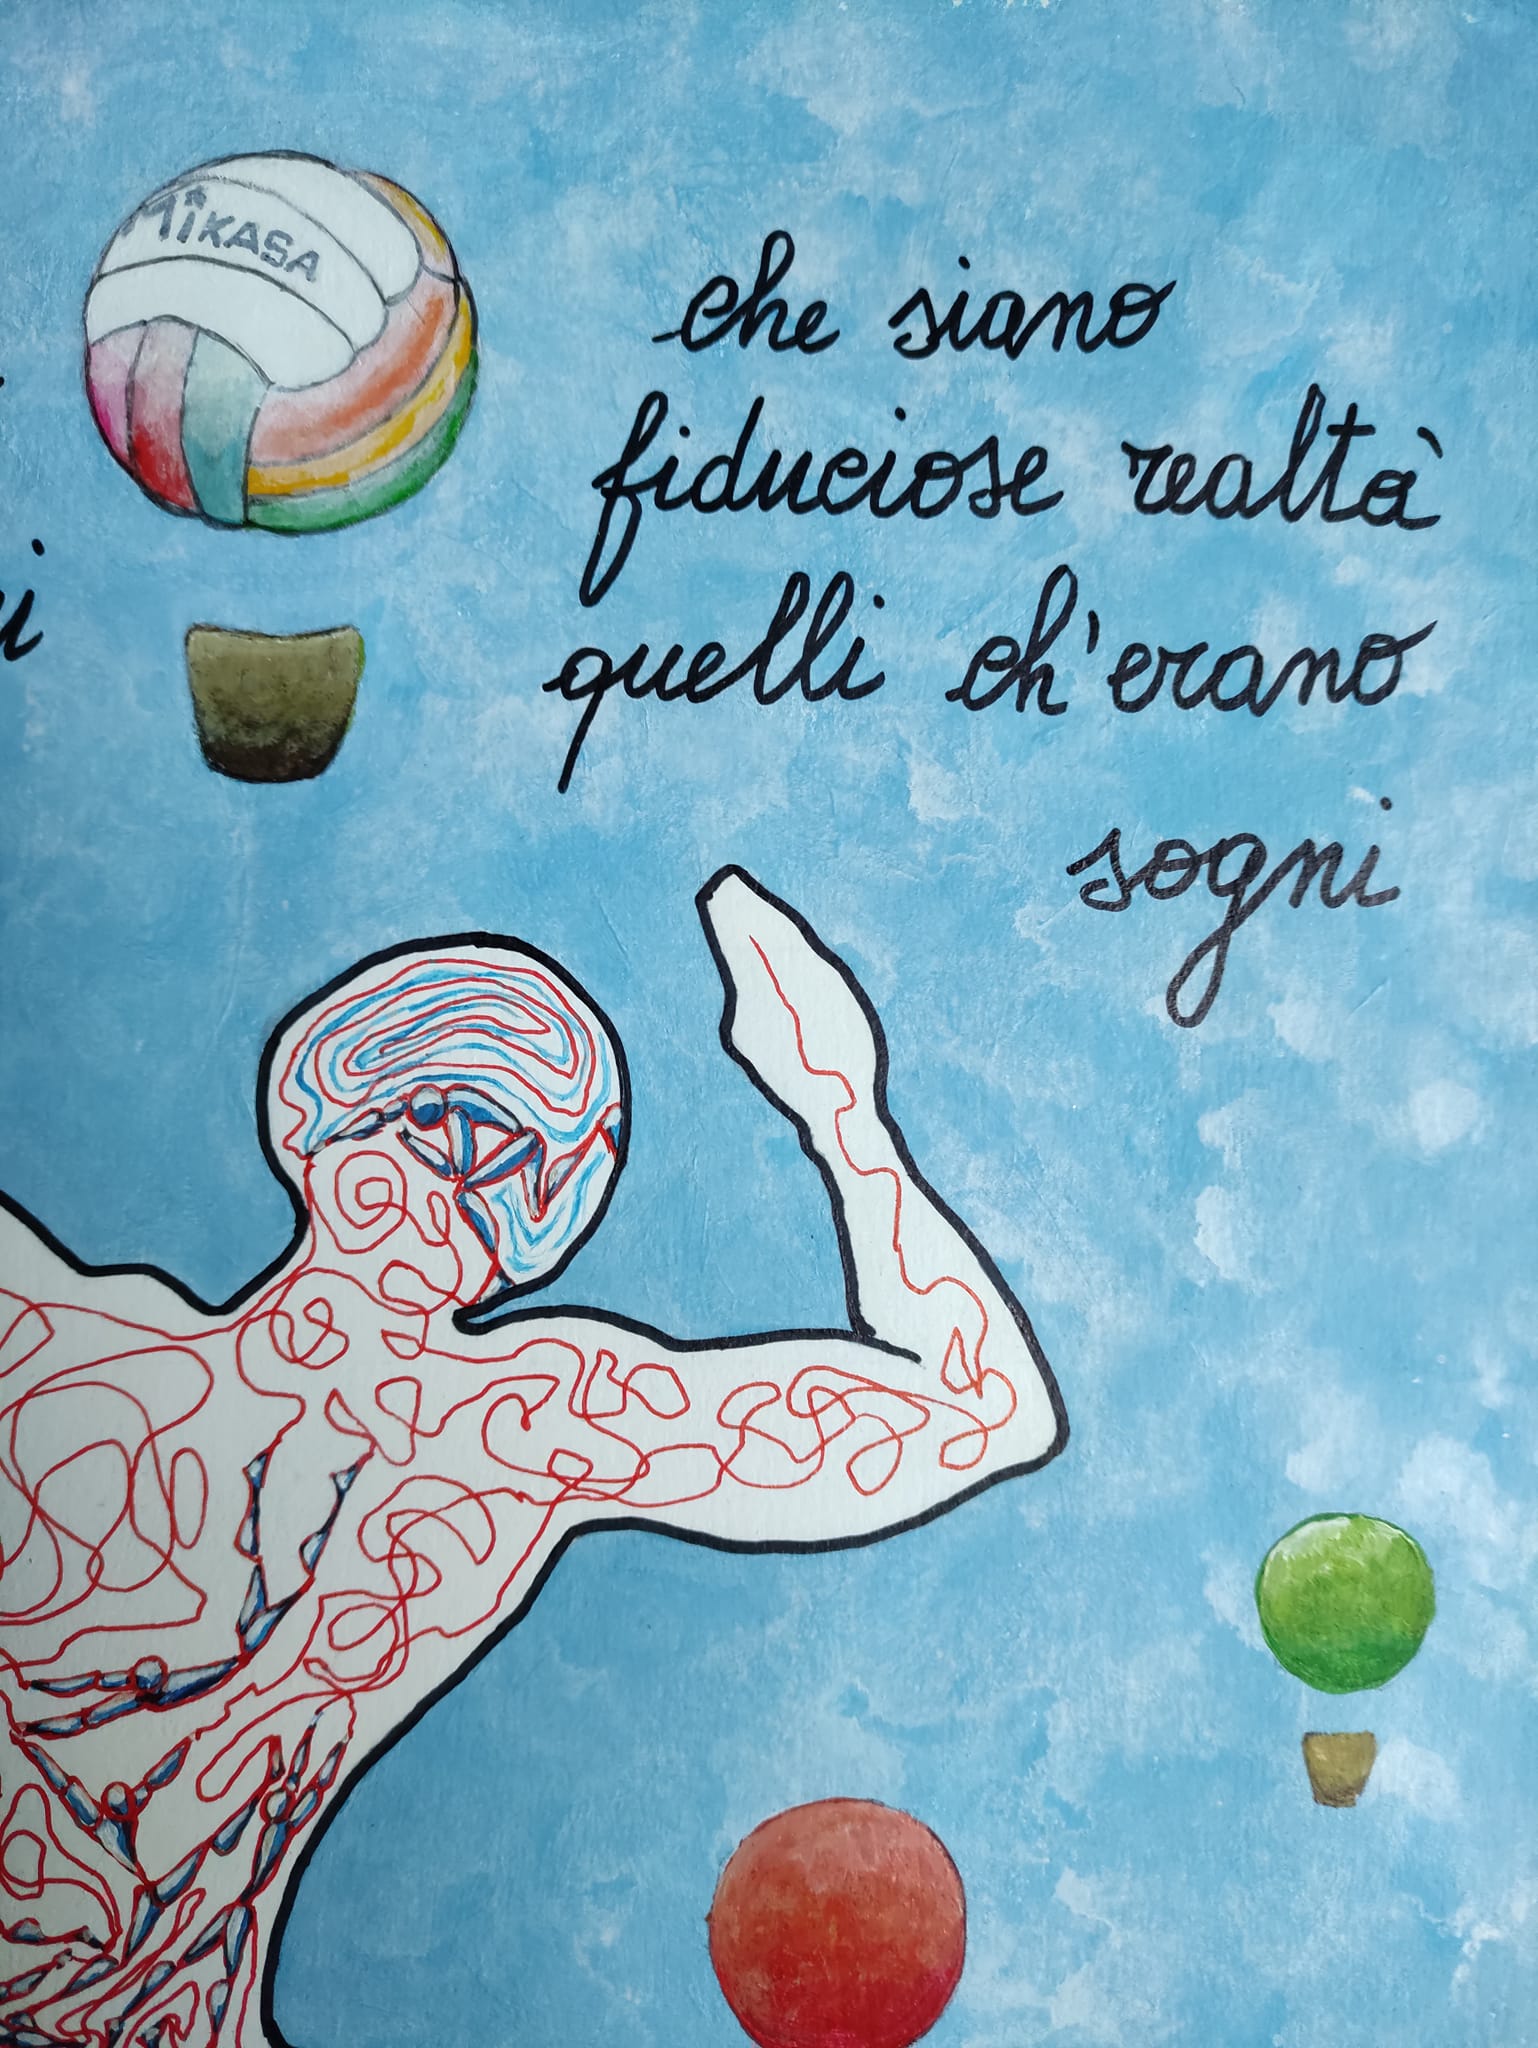 MIKASA
che siano
fiduciose realtà
quelli ch'erano
sogni